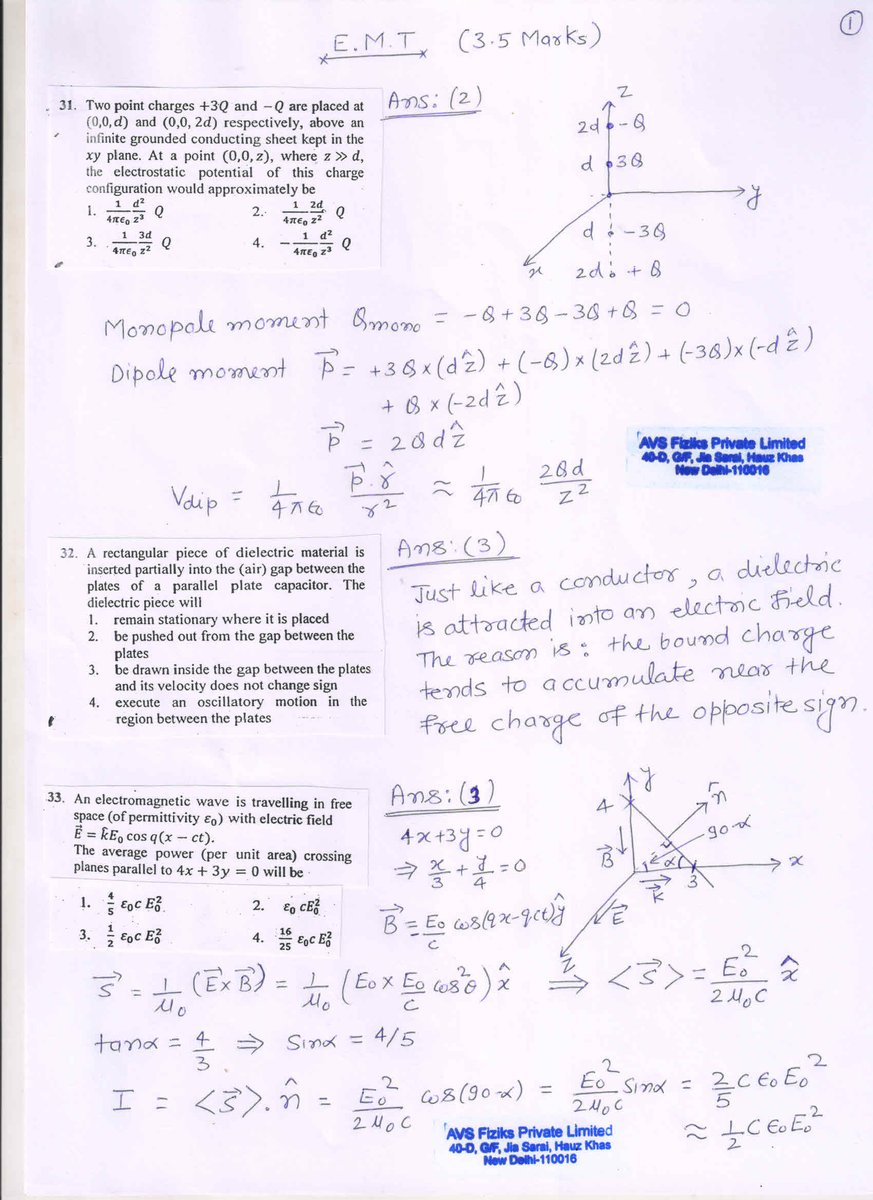 ①
E.M.T (3.5 Marks)
31. Two point charges +3Q and −Q are placed at
(0,0,d) and (0,0, 2d) respectively, above an
infinite grounded conducting sheet kept in the
xy plane. At a point (0,0,z), where z ≫ d,
the electrostatic potential of this charge
configuration would approximately be
1. 1/4πϵ₀ d²/z³ Q 2. 1/4πϵ₀ 2d/z² Q
3. 1/4πϵ₀ 3d/z² Q 4. − 1/4πϵ₀ d²/z³ Q
Ans: (2)
z
2d −Q
d 3Q
y
d −3Q
x
2d + Q
Monopole moment Qmono = −Q + 3Q − 3Q + Q = 0
Dipole moment p⃗ = +3Q × (d ẑ) + (−Q) × (2d ẑ) + (−3Q) × (−d ẑ)
+ Q × (−2d ẑ)
p⃗ = 2Qd ẑ
AVS Fiziks Private Limited
40-D, G/F, Jia Sarai, Hauz Khas
New Delhi-110016
Vdip = 1/4πϵ₀ p⃗.r̂/r² ≈ 1/4πϵ₀ 2Qd/z²
32. A rectangular piece of dielectric material is
inserted partially into the (air) gap between the
plates of a parallel plate capacitor. The
dielectric piece will
1. remain stationary where it is placed
2. be pushed out from the gap between the
plates
3. be drawn inside the gap between the plates
and its velocity does not change sign
4. execute an oscillatory motion in the
region between the plates
Ans: (3)
Just like a conductor, a dielectric
is attracted into an electric field.
The reason is: the bound charge
tends to accumulate near the
free charge of the opposite sign.
33. An electromagnetic wave is travelling in free
space (of permittivity ε₀) with electric field
E⃗ = k̂E₀ cos q(x − ct).
The average power (per unit area) crossing
planes parallel to 4x + 3y = 0 will be
1. 4/5 ε₀c E₀² 2. ε₀ cE₀²
3. 1/2 ε₀c E₀² 4. 16/25 ε₀c E₀²
Ans: (3)
4x+3y=0
⇒ x/3 + y/4 = 0
B⃗ = E₀/c cos(qx−qct) ŷ
y
4
n̂
90−α
B⃗
α
x
3
k⃗
E⃗
z
S⃗ = 1/μ₀ (E⃗×B⃗) = 1/μ₀ (E₀ × E₀/c cos²θ) x̂ ⇒ <S⃗> = E₀²/2μ₀c x̂
tanα = 4/3 ⇒ Sinα = 4/5
I = <S⃗>.n̂ = E₀²/2μ₀c cos(90−α) = E₀²/2μ₀c Sinα = 2/5 c ϵ₀ E₀²
≈ 1/2 c ϵ₀ E₀²
AVS Fiziks Private Limited
40-D, G/F, Jia Sarai, Hauz Khas
New Delhi-110016